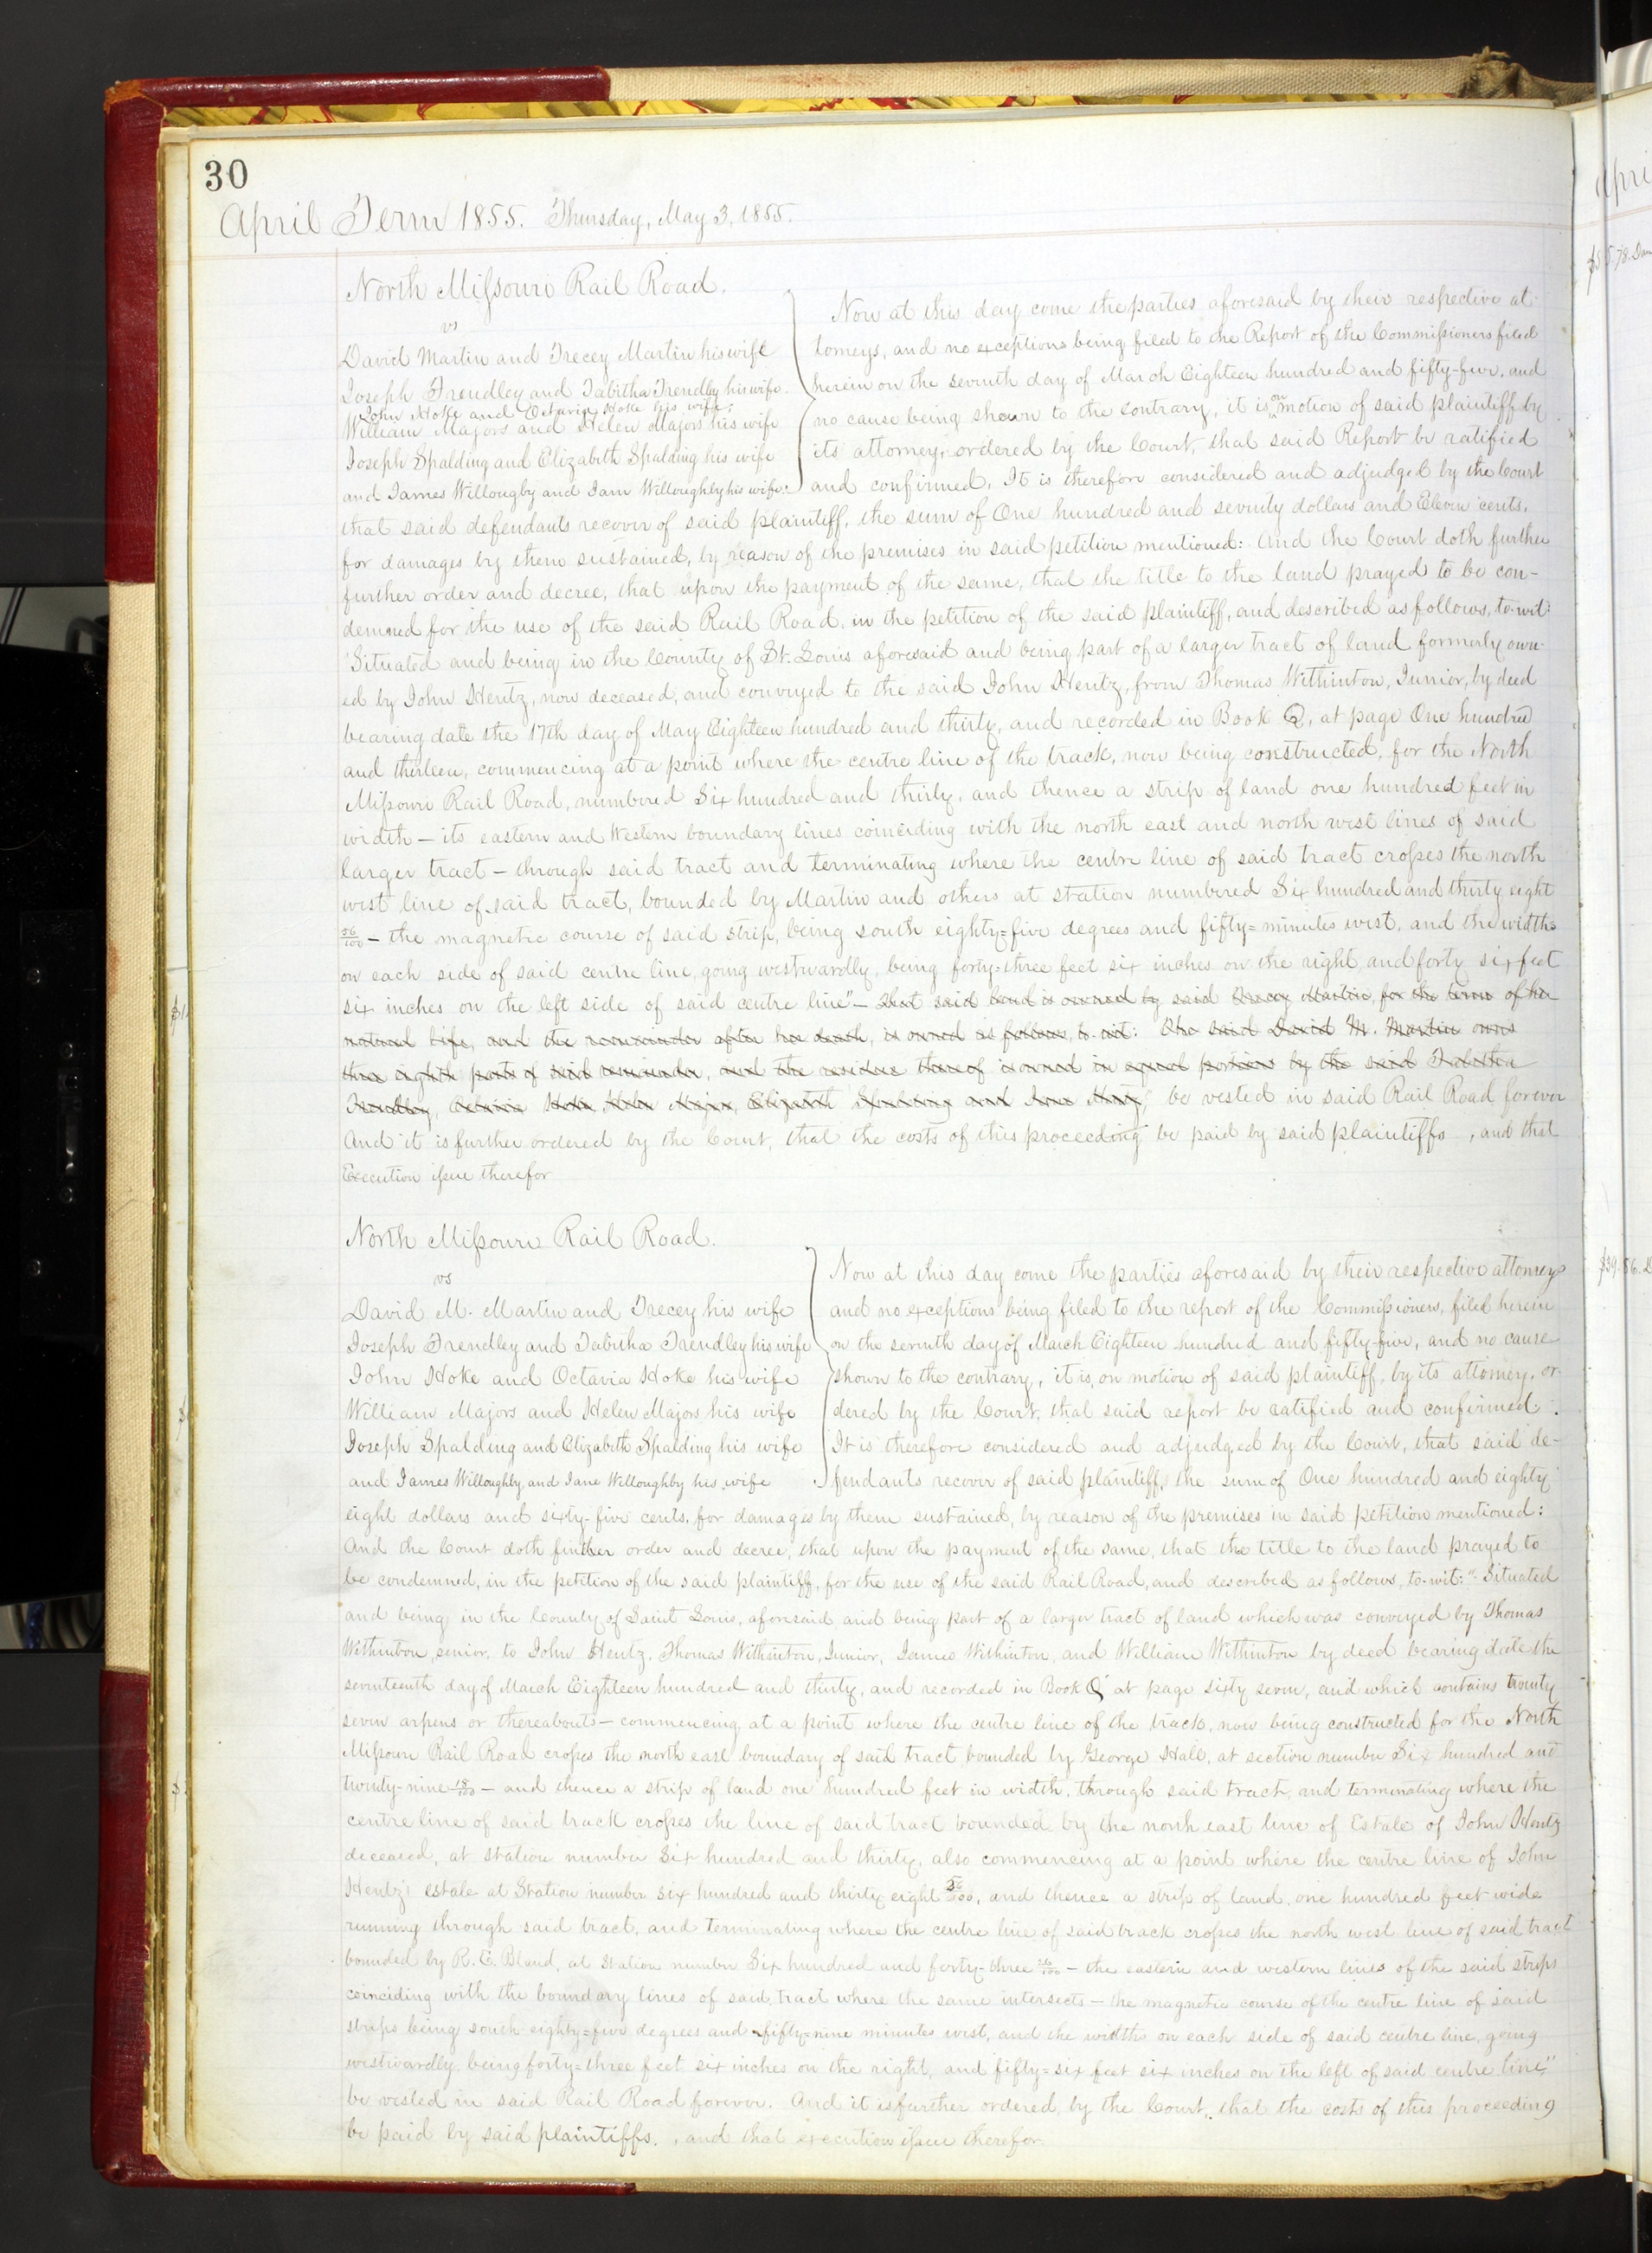 30
April Term 1855. Thursday, May 3, 1855.
North Missouri Rail Road.
vs
David Martin and Trecey Martin his wife
Joseph Trendley and Tabitha Trendley his wife.
John Hoke and Octavia Hoke his wife,
William Majors and Helen Majors his wife
Joseph Spalding and Elizabeth Spalding his wife
and James Willougby and Jam Willoughby his wife.
Now at this day come the parties aforesaid by their respective at-
torneys, and no exceptions being filed to the Report of the Commissioners filed
herein on the seventh day of March Eighteen hundred and fifty-five, and
no cause being shown to the contrary, it is on motion of said plaintiff by
its attorney, ordered by the Court, that said Report be ratified
and confirmed. It is therefore considered and adjudged by the Court
that said defendants recover of said plaintiff, the sum of One hundred and seventy dollars and Eleven cents,
for damages by them sustained, by reason of the premises in said petition mentioned: And the Court doth further
further order and decree, that upon the payment of the same, that the title to the land prayed to be con-
demned for the use of the said Rail Road, in the petition of the said plaintiff, and described as follows, to-wit:
"Situated and being in the County of St. Louis aforesaid and being part of a larger tract of land formerly own-
ed by John Hentz, now deceased, and conveyed to the said John Hentz, from Thomas Withinton, Junior, by deed
bearing date the 17th day of May Eighteen hundred and thirty, and recorded in Book Q, at page One hundred
and thirteen, commencing at a point where the centre line of the track, now being constructed, for the North
Missouri Rail Road, numbered Six hundred and thirty, and thence a strip of land one hundred feet in
width — its eastern and Western boundary lines coinciding with the north east and north west lines of said
larger tract — through said tract and terminating where the centre line of said tract crosses the north
west line of said tract, bounded by Martin and others at station numbered Six hundred and thirty eight
56/100 — the magnetic course of said strip, being south eighty=five degrees and fifty= minutes west, and the widths
on each side of said centre line, going westwardly, being forty=three feet six inches on the right, and forty six feet
six inches on the left side of said centre line" — That said land is owned by said Trecey Martin, for the term of her
natural life, and the remainder after her death, is owned as follows, to-wit: The said David M. Martin owns
three eighth parts of said remainder, and the residue thereof is owned in equal portions by the said Tabitha
Trendley, Octavia Hoke, Helen Majors, Elizabeth Spalding and Jane be vested in said Rail Road forever
And it is further ordered by the Court, that the costs of this proceeding be paid by said plaintiffs , and that
Execution issue therefor
North Missouri Rail Road.
vs
David M. Martin and Trecey his wife
Joseph Trendley and Tabitha Trendley his wife
John Hoke and Octavia Hoke his wife
William Majors and Helen Majors his wife
Joseph Spalding and Elizabeth Spalding his wife
and James Willoughby and Jane Willoughby his wife
Now at this day come the parties aforesaid by their respective attorneys
and no exceptions being filed to the report of the Commissioners, filed herein
on the seventh day of March Eighteen hundred and fifty-five, and no cause
shown to the contrary, it is, on motion of said plaintiff, by its attorney, or-
dered by the Court, that said report be ratified and confirmed.
It is therefore considered and adjudged by the Court, that said de-
fendants recover of said plaintiff, the sum of One hundred and eighty
eight dollars and sixty-five cents, for damages by them sustained, by reason of the premises in said petition mentioned:
And the Court doth further order and decree, that upon the payment of the same, that the title to the land prayed to
be condemned, in the petition of the said plaintiff, for the use of the said Rail Road, and described as follows, to-wit: "Situated
and being in the County of Saint Louis, aforesaid and being part of a larger tract of land which was conveyed by Thomas
Withinton, senior, to John Hentz, Thomas Withinton, Junior, James Withinton, and William Withinton by deed bearing date the
seventeenth day of March Eighteen hundred and thirty, and recorded in Book Q at page sixty seven, and which contains twenty
seven arpens or thereabouts — commencing at a point where the centre line of the track, now being constructed for the North
Missouri Rail Road crosses the north east boundary of said tract bounded by George Hall, at section number Six hundred and
twenty-nine 18/100 — and thence a strip of land one hundred feet in width, through said tract, and terminating where the
centre line of said track crosses the line of said tract bounded by the north east line of Estate of John Hentz
deceased, at station number Six hundred and thirty, also commencing at a point where the centre line of John
Hentz' estate at Station number six hundred and thirty eight 56/100, and thence a strip of land, one hundred feet wide
running through said tract, and terminating where the centre line of said track crosses the north west line of said tract
bounded by R. C. Bland, at Station number Six hundred and forty-three 26/100 — the eastern and western lines of the said strips
coinciding with the boundary lines of said tract where the same intersects — the magnetic course of the centre line of said
strips being south eighty=five degrees and fifty=nine minutes west, and the widths on each side of said centre line, going
westwardly, being forty=three feet six inches on the right, and fifty=six feet six inches on the left of said centre line,"
be vested in said Rail Road forever. And it is further ordered, by the Court, that the costs of this proceeding
be paid by said plaintiffs. , and that execution issue therefor.